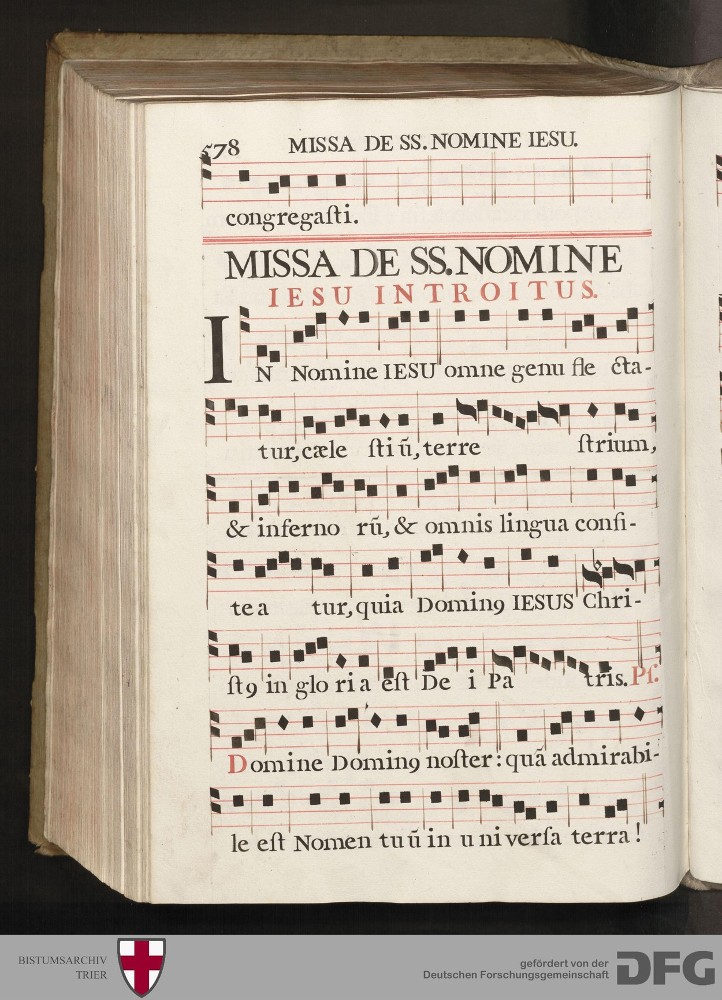 578 MISSA DE SS. NOMINE IESU.
congregaſti.
MISSA DE SS. NOMINE
IESU INTROITUS.
IN Nomine IESU omne genu fle cta-
tur, cæle ſti ũ, terre ſtrium,
& inferno rũ, & omnis lingua confi-
te a tur, quia Dominꝯ IESUS Chri-
ſtꝯ in glo ri a eſt De i Pa tris. Pſ.
Domine Dominꝯ noſter: quã admirabi-
le eſt Nomen tuũ in u ni verſa terra!
BISTUMSARCHIV
TRIER
gefördert von der
Deutschen Forschungsgemeinschaft
DFG